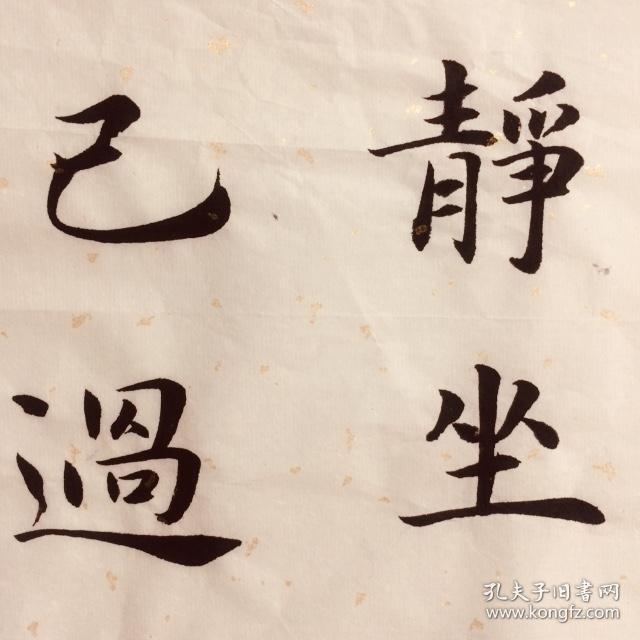 靜坐
己過
孔夫子旧书网
www.kongfz.com